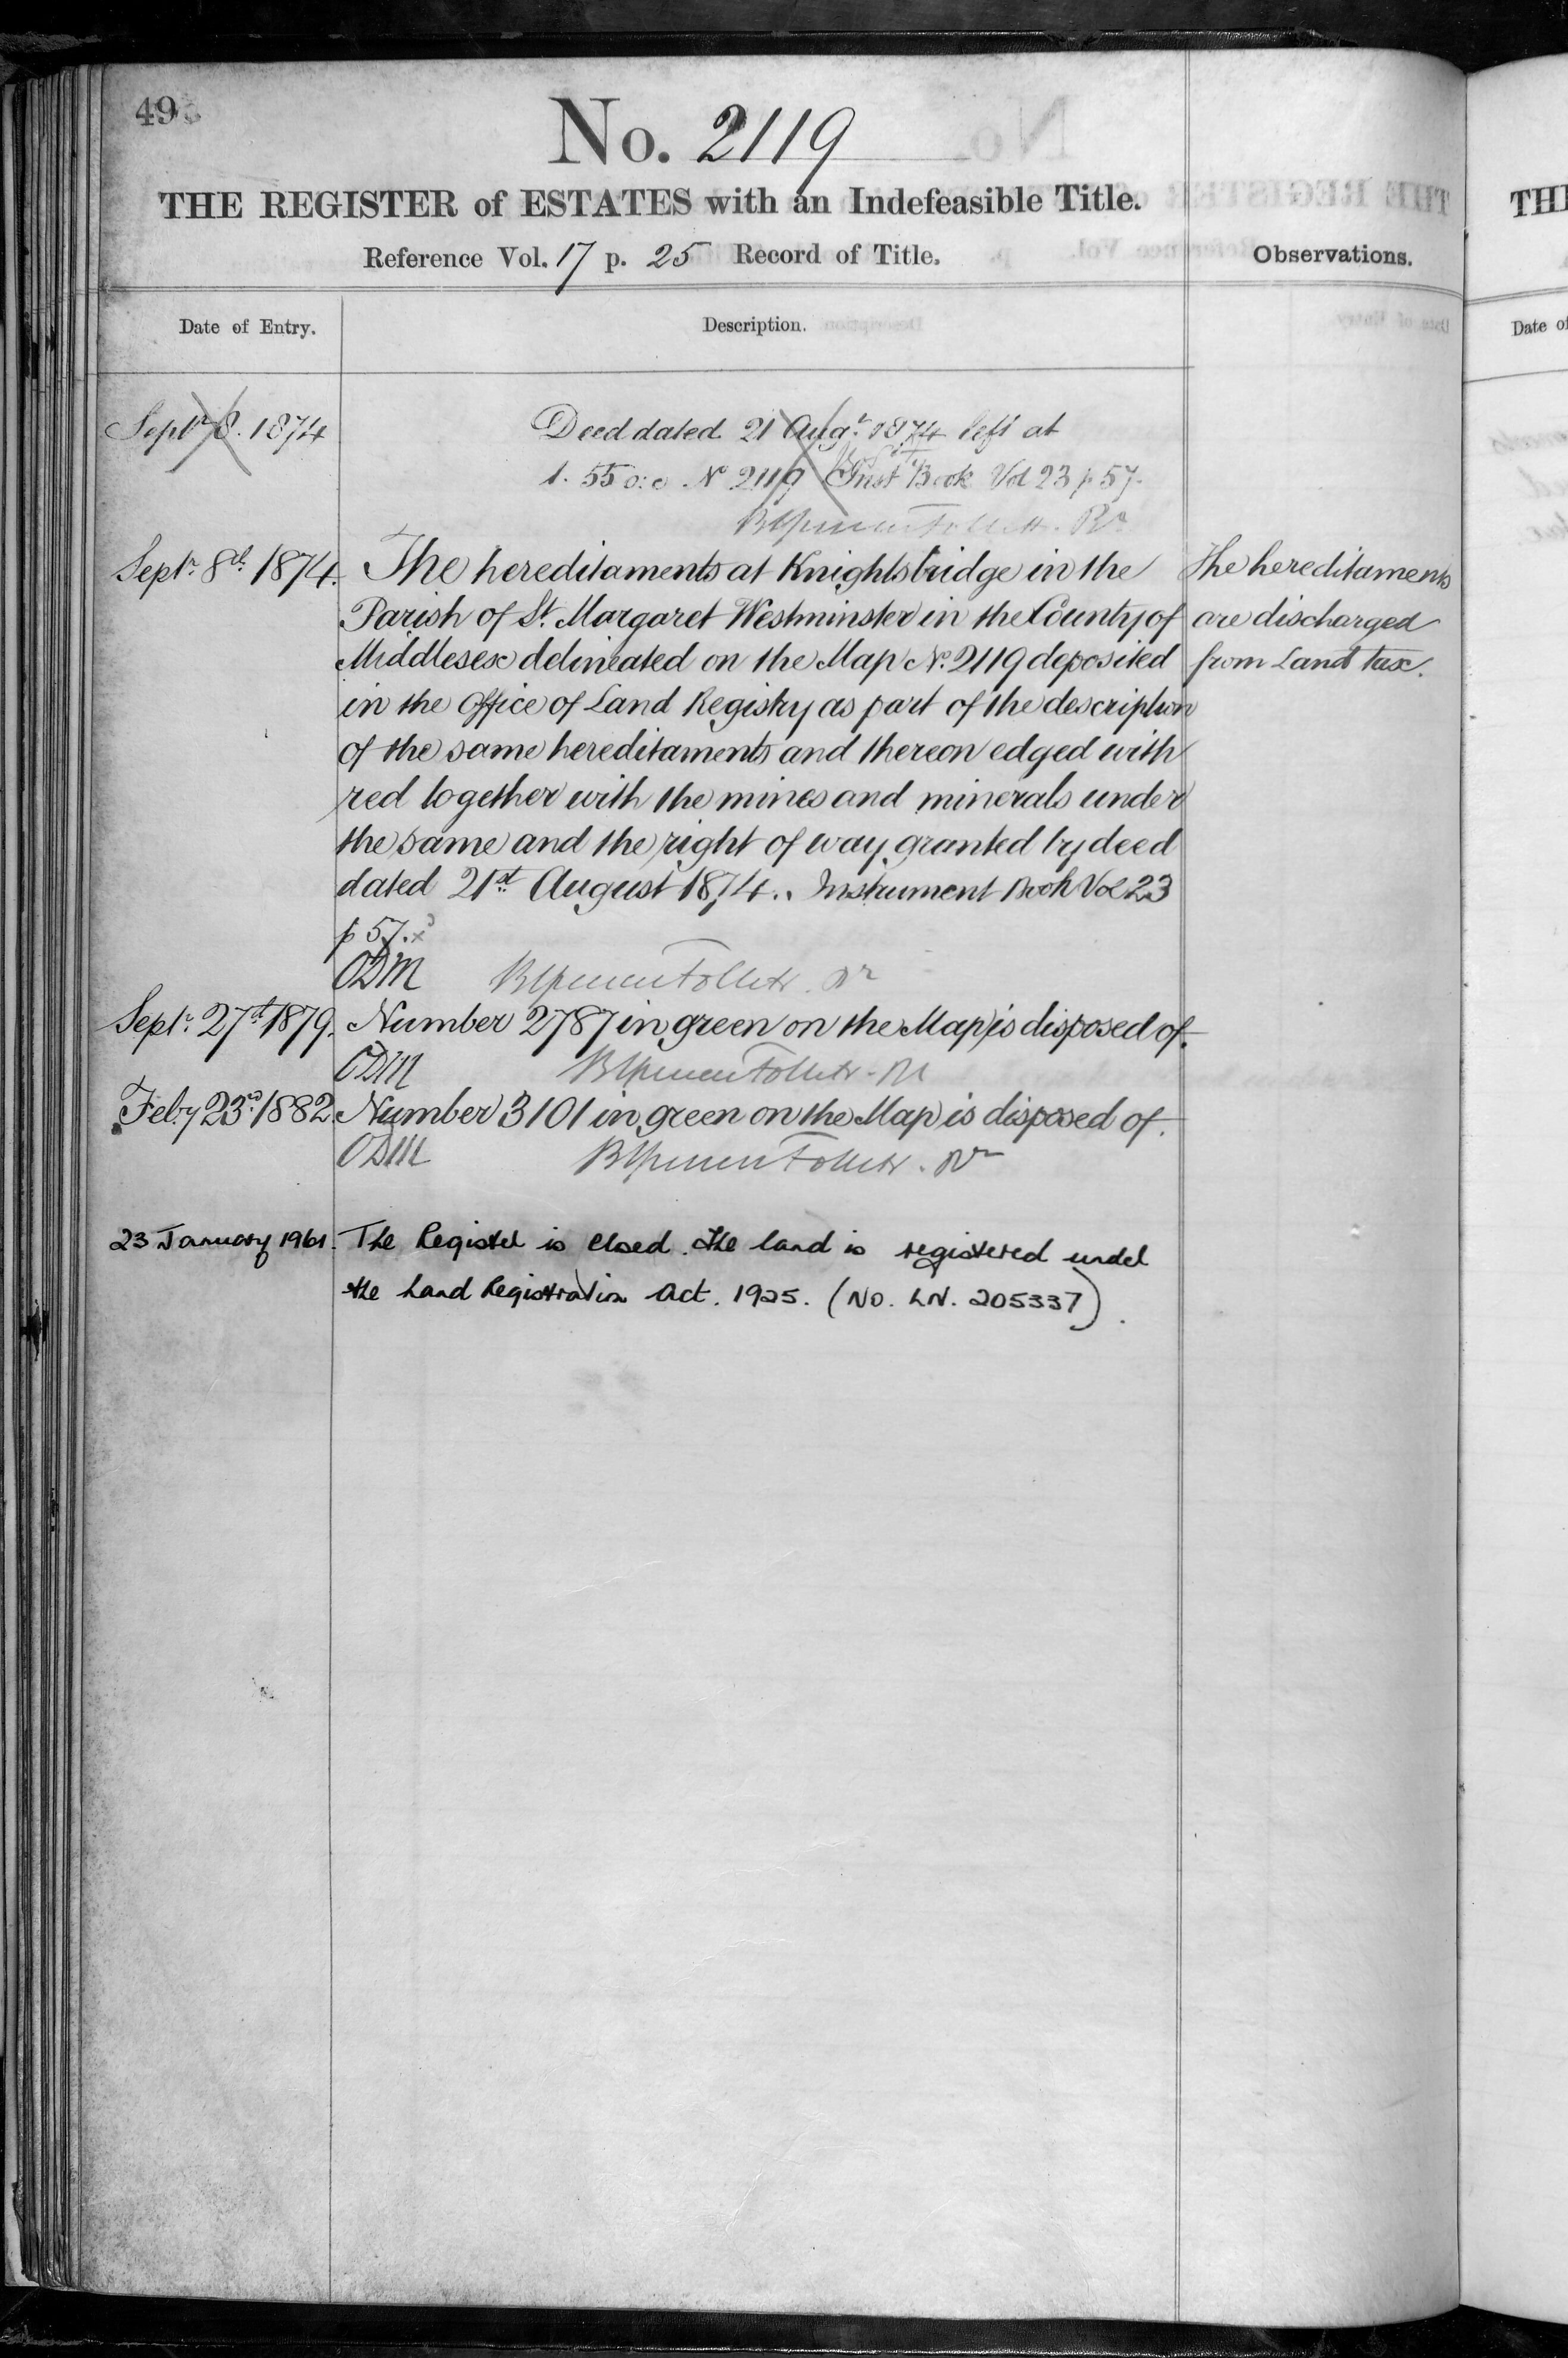 49
No. 2119
THE REGISTER of ESTATES with an Indefeasible Title.
Reference Vol. 17 p. 25 Record of Title.
Observations.
Date of Entry.
Description.
Septr 8. 1874
Deed dated 21 Augt 1874 left at
1. 55 o:c No 2119 Inst Book Vol 23 p 57.
Septr 8th 1874.
The hereditaments at Knightsbridge in the
Parish of St. Margaret Westminster in the County of
Middlesex delineated on the Map No. 2119 deposited
in the Office of Land Registry as part of the description
of the same hereditaments and thereon edged with
red together with the mines and minerals under
the same and the right of way granted by deed
dated 21st August 1874.. Instrument Book Vol 23
p 57.
ODM
The hereditaments
are discharged
from Land tax.
Septr 27th 1879.
Number 2787 in green on the Map is disposed of.
ODM
Feby 23rd 1882.
Number 3101 in green on the Map is disposed of.
ODM
23 January 1961.
The Register is closed. The land is registered under
the Land Registration Act. 1925. (NO. LN. 205337).
TH
Date of